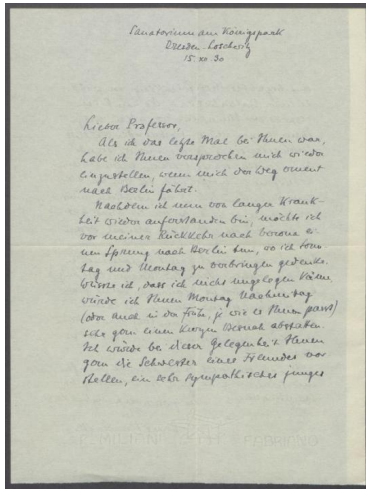 Sanatorium am Königspark
Dresden-Loschwitz
15. XII. 30
Lieber Professor,
Als ich das letzte Mal bei Ihnen war,
habe ich Ihnen versprochen mich wieder
einzustellen, wenn mich der Weg erneut
nach Berlin führt.
Nachdem ich nun von langer Krank-
heit wieder auferstanden bin, möchte ich
vor meiner Rückkehr nach Verona ei-
nen Sprung nach Berlin tun, wo ich Sonn-
tag und Montag zu verbringen gedenke.
Wüsste ich, dass ich nicht ungelegen käme,
würde ich Ihnen Montag Nachmittag
(oder auch in der Früh, je wie es Ihnen passt)
sehr gern einen kurzen Besuch abstatten.
Ich würde bei dieser Gelegenheit Ihnen
gern die Schwester eines Freundes vor
stellen, ein sehr sympathisches junges